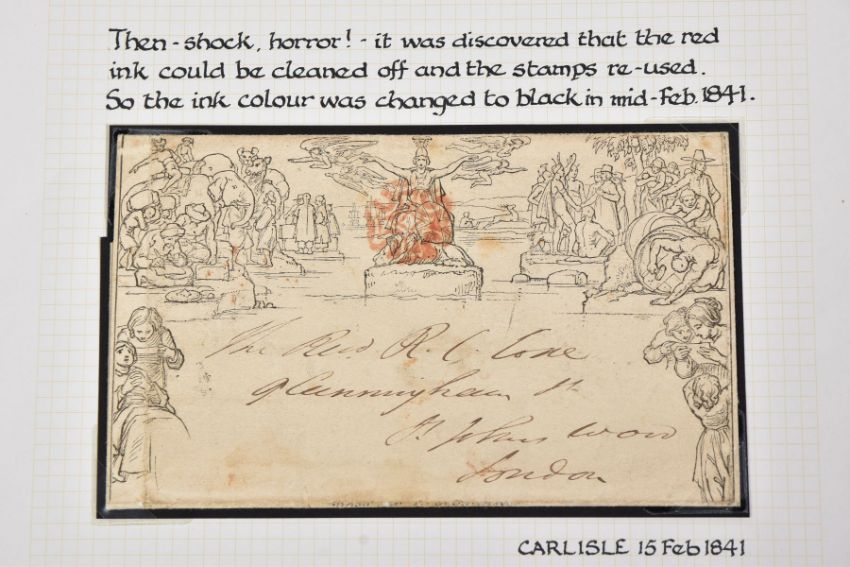 Then - shock, horror! - it was discovered that the red
ink could be cleaned off and the stamps re-used.
So the ink colour was changed to black in mid-Feb. 1841.
The Revd R. C. Coxe
9 Cunningham Pl
St Johns Wood
London
CARLISLE 15 Feb 1841